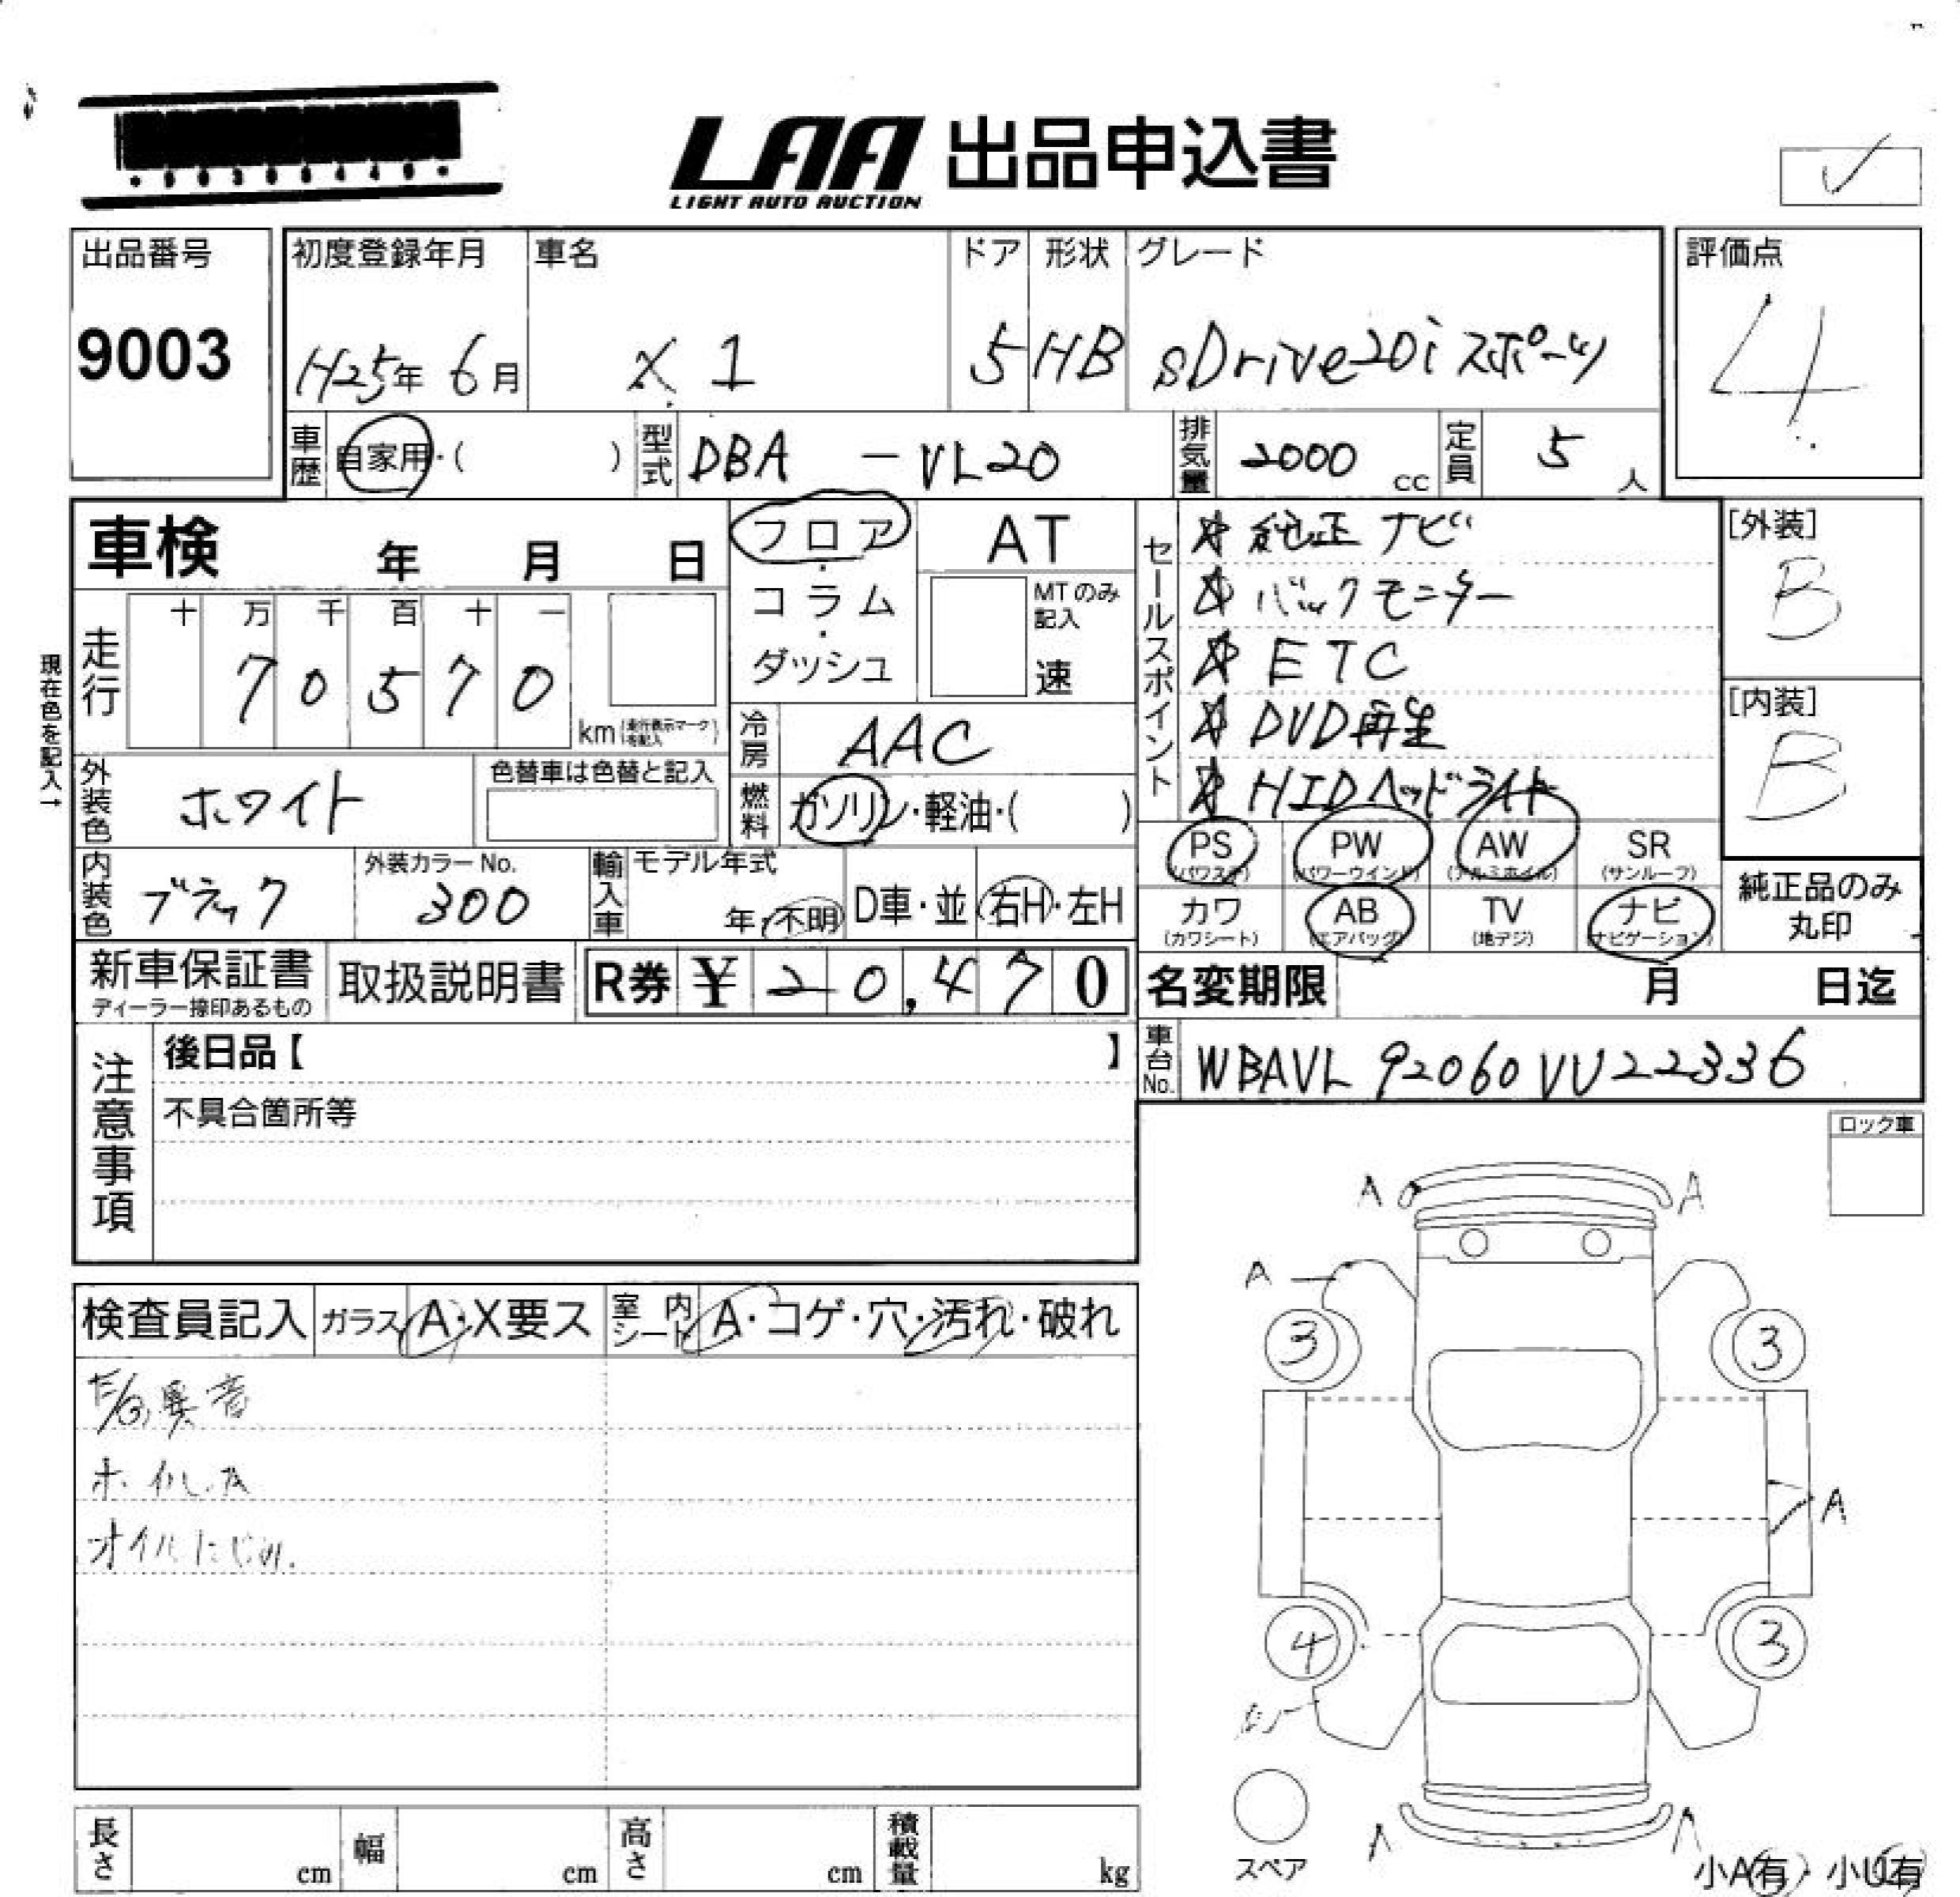 LAA 出品申込書
LIGHT AUTO AUCTION
出品番号
9003
初度登録年月
H25年 6月
車名
X1
ドア
5
形状
HB
グレード
sDrive20i スポーツ
評価点
4
車歴 自家用・( )
型式 DBA - VL20
排気量 2000 cc
定員 5 人
車検 年 月 日
フロア・コラム・ダッシュ
AT
MTのみ記入
速
セールスポイント
☆ 純正ナビ
☆ バックモニター
☆ ETC
☆ DVD再生
☆ HIDヘッドライト
[外装]
B
[内装]
B
現在色を記入→
走行
十 万 千 百 十 一
7 0 5 7 0
km(走行表示マークを記入)
冷房 AAC
燃料 ガソリン・軽油・( )
外装色 ホワイト
色替車は色替と記入
内装色 ブラック
外装カラーNo.
300
輸入車
モデル年式
年・不明
D車・並
右H・左H
PS (パワステ)
PW (パワーウインド)
AW (アルミホイル)
SR (サンルーフ)
カワ (カワシート)
AB (エアバッグ)
TV (地デジ)
ナビ (ナビゲーション)
純正品のみ
丸印
新車保証書
ディーラー捺印あるもの
取扱説明書
R券 ¥ 20,470
名変期限 月 日迄
車台No. WBAVL92060VU22336
注意事項
後日品【 】
不具合箇所等
ロック車
検査員記入
ガラス A・X要ス
室内シート A・コゲ・穴・汚れ・破れ
異音
オイルにじみ.
A A
A
3 3
A
4 3
スペア
A A
小A有・小U有
長さ cm
幅 cm
高さ cm
積載量 kg